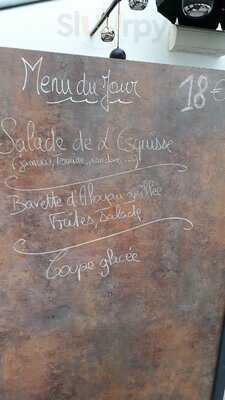 Slurpy
Menu du Jour
18 €
Salade de L'Esquisse
(jambon, tomate,
Bavette d'Aloyau grillée
Frites, Salade
Coupe glacée